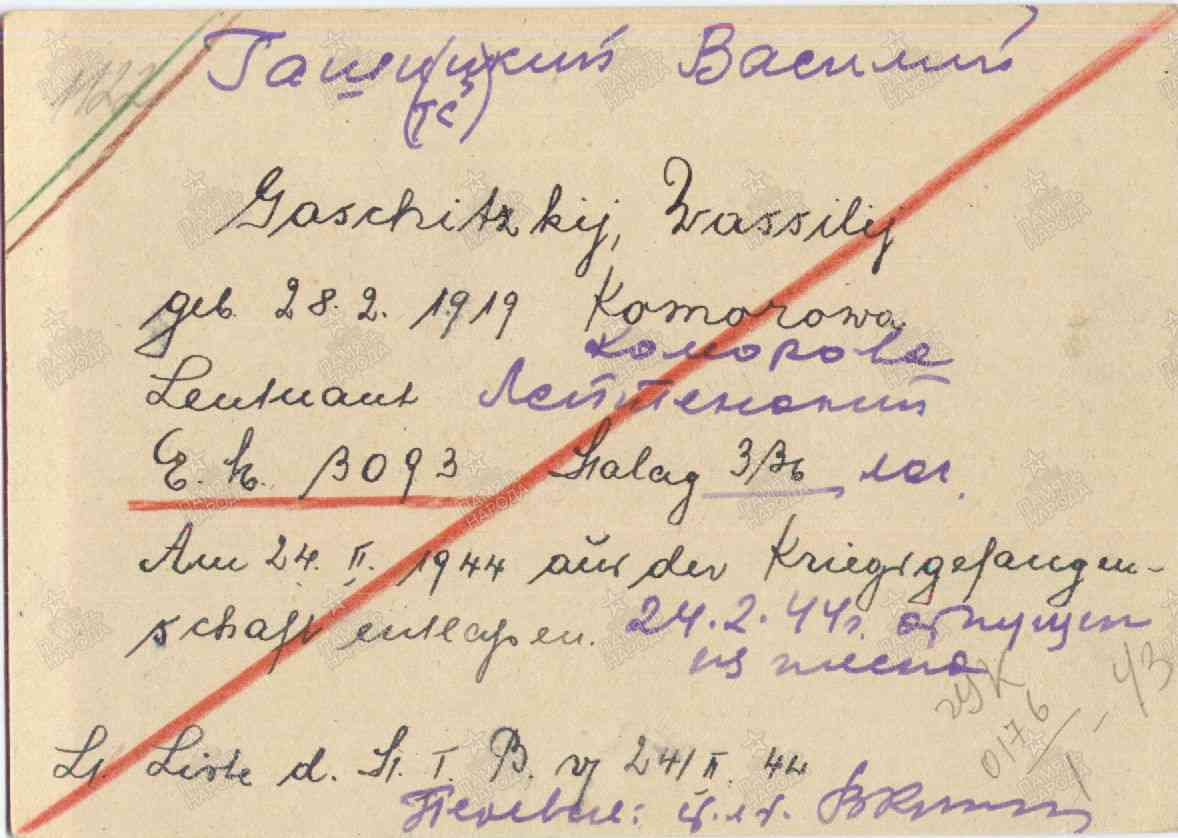 1122
Гашицкий Василий
(тс)
Gaschitzkij, Wassilij
geb. 28.2.1919 Komorowa
Коморова
Leutnant Лейтенант
E.k. 3093 Stalag 3/B лаг.
Am 24. II. 1944 aus der Kriegsgefangen-
schaft entlassen. 24.2.44г. отпущен
из плена
Lt. Liste d. St. I. B. v 24/II. 44
Перевел:
0176